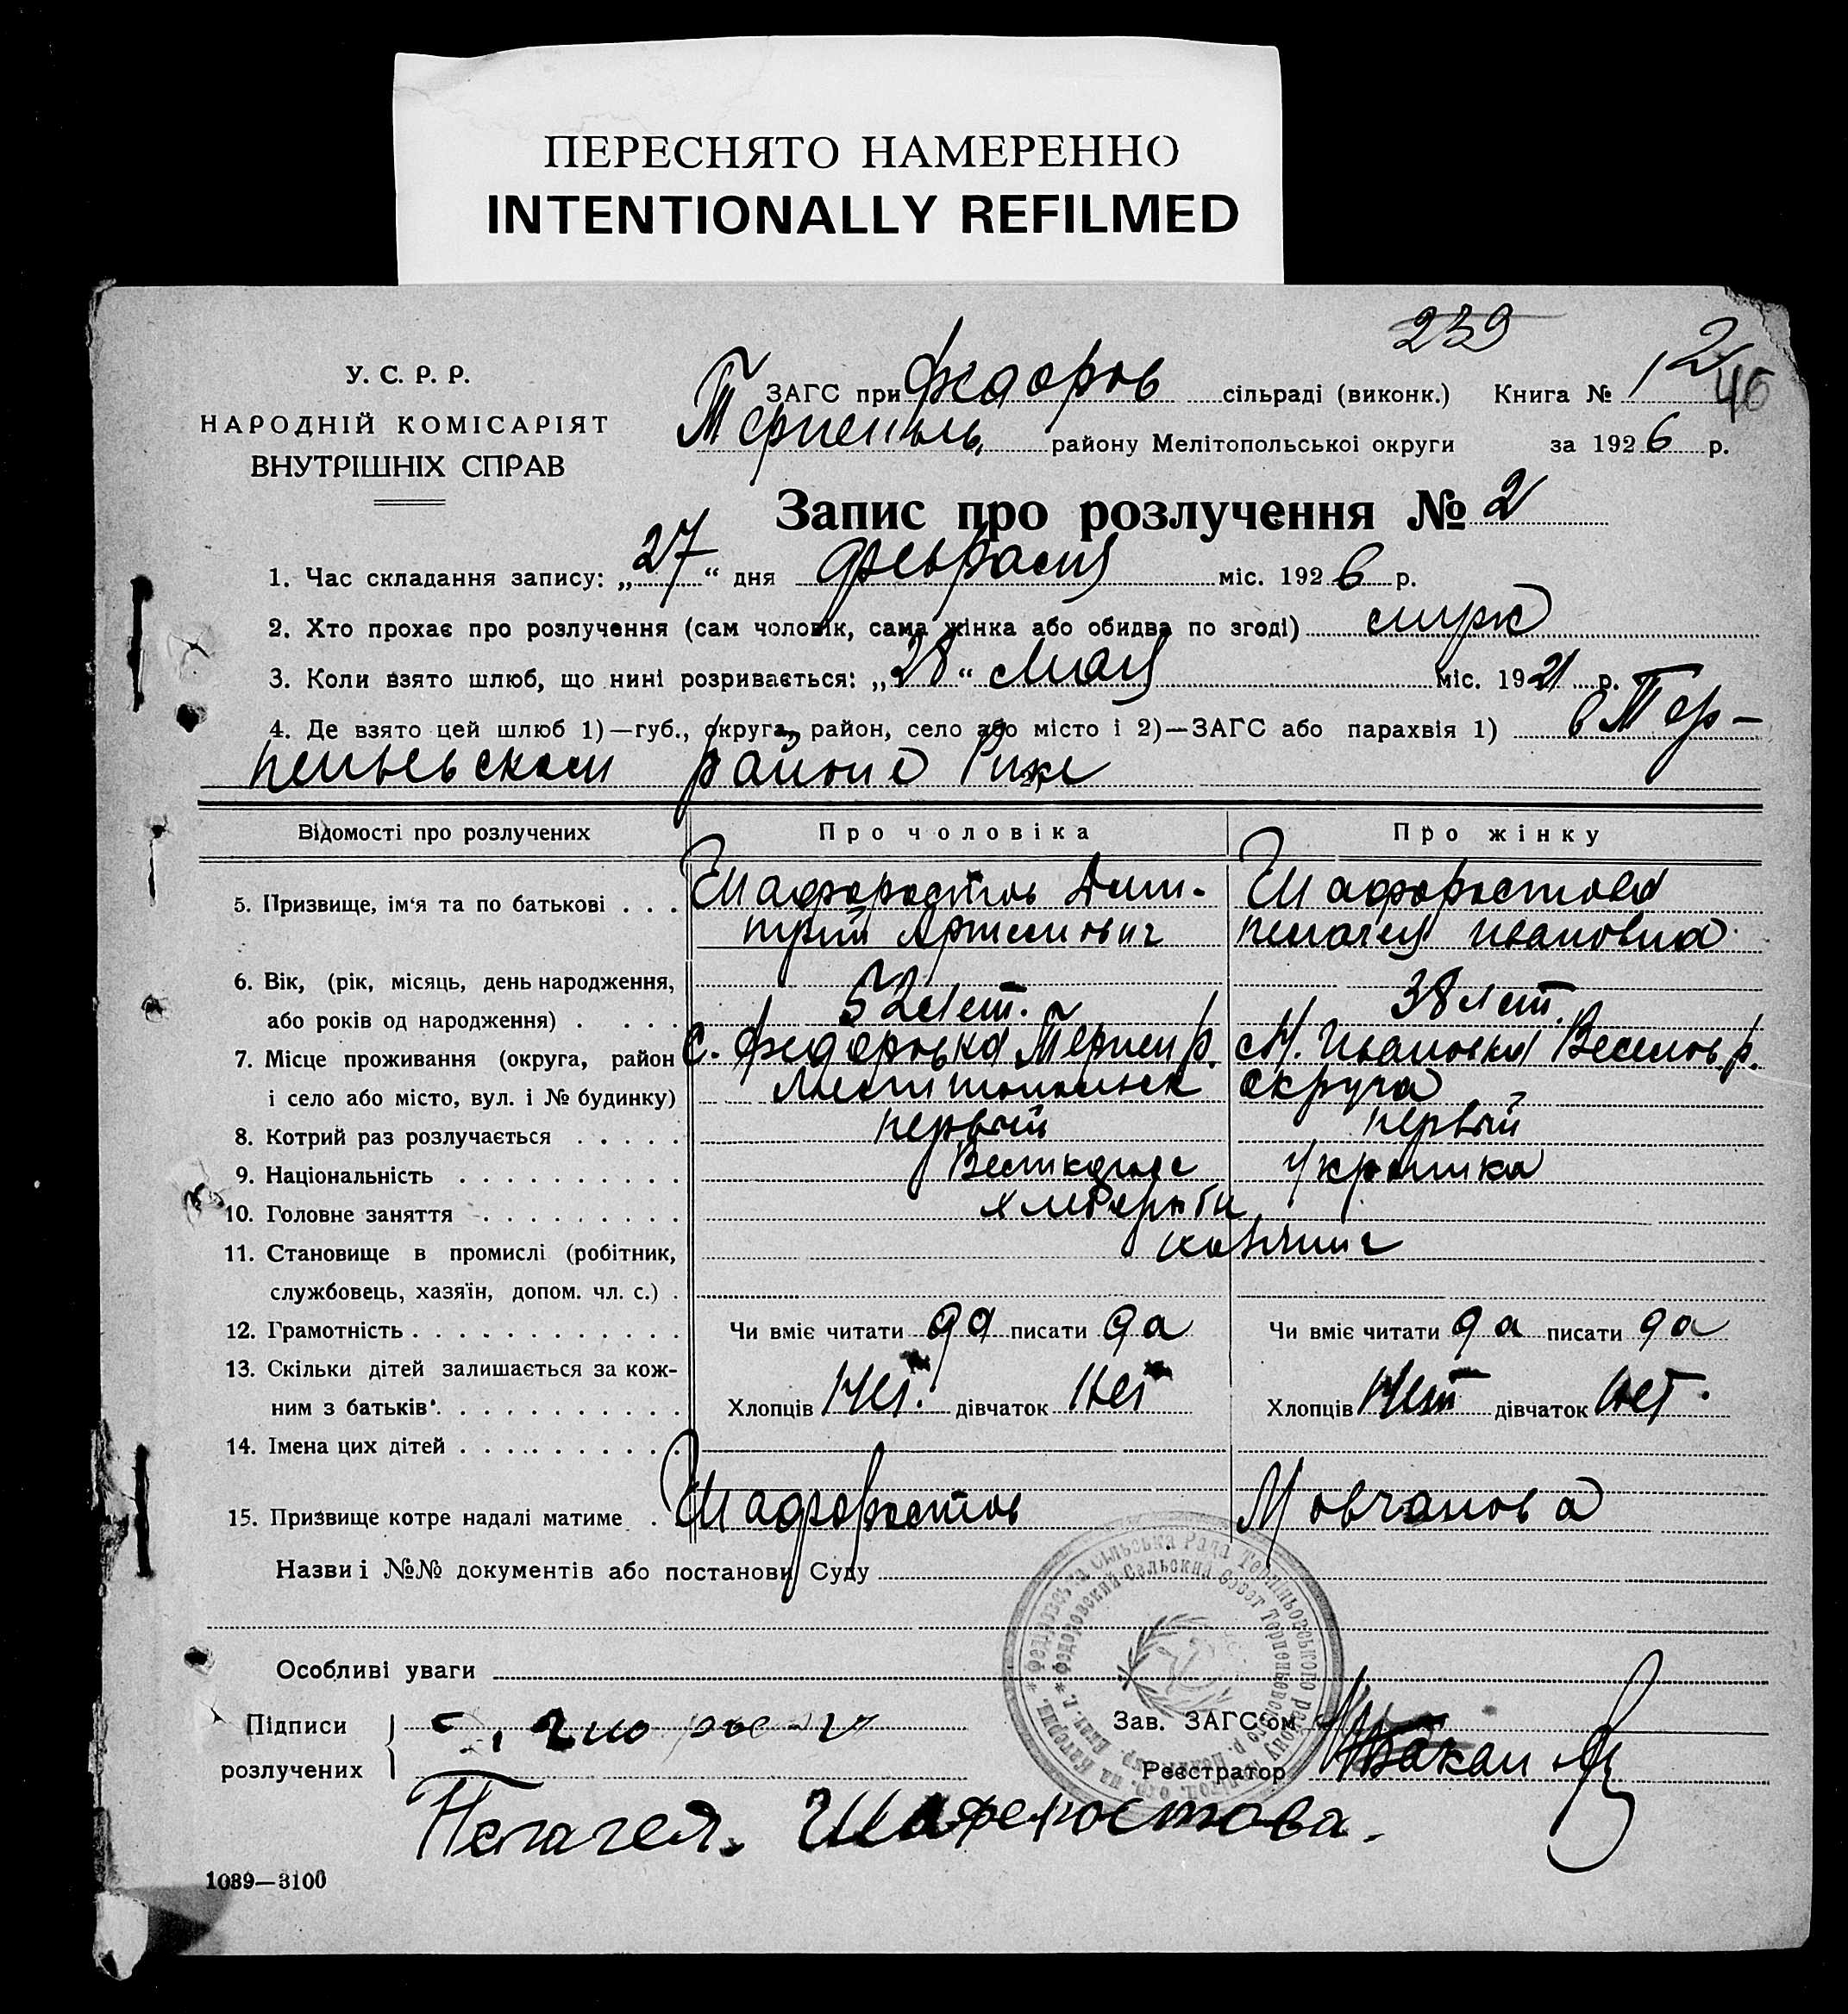 ПЕРЕСНЯТО НАМЕРЕННО
INTENTIONALLY REFILMED
239
2
У. С. Р. Р.
НАРОДНІЙ КОМІСАРІЯТ
ВНУТРІШНІХ СПРАВ
ЗАГС при Федоров сільраді (виконк.) Книга № 1 46
Терпеньев району Мелітопольської округи за 1926 р.
Запис про розлучення № 2
1. Час складання запису: „27“ дня февраля міс. 1926 р.
2. Хто прохає про розлучення (сам чоловік, сама жінка або обидва по згоді)
3. Коли взято шлюб, що нині розривається: „28“ мая міс. 1921 р.
4. Де взято цей шлюб 1)—губ., округа, район, село або місто і 2)—ЗАГС або парахвія 1) в Тер-
пеньевском районе 2)
Відомості про розлучених Про чоловіка Про жінку
5. Призвище, ім‘я та по батькові . . . Шафоростов Дми- Шафоростова
трий Артемович Пелагея Ивановна
6. Вік, (рік, місяць, день народження,
або років од народження) . . . . 52 лет. 38 лет.
7. Місце проживання (округа, район с. Федоровка Терпен р. М. Ивановка Веселов р.
і село або місто, вул. і № будинку) Мелитопольск округа
8. Котрий раз розлучається . . . . . первый первый
9. Національність . . . . . . . . . . Великорос Украинка
10. Головне заняття . . . . . . . . .
11. Становище в промислі (робітник,
службовець, хазяїн, допом. чл. с.) .
12. Грамотність . . . . . . . . . . . . Чи вміє читати да писати да Чи вміє читати да писати да
13. Скільки дітей залишається за кож-
ним з батьків . . . . . . . . . . . Хлопців Нет. дівчаток Нет Хлопців Нет дівчаток Нет.
14. Імена цих дітей . . . . . . . . . .
15. Призвище котре надалі матиме . Шафоростов Мовчанова
Назви і №№ документів або постанови Суду
Особливі уваги
Підписи
розлучених
Зав. ЗАГС‘ом
Реєстратор
Пелагея. Шафоростова.
Федоровський Сельский Совет Терпеньевского р.
1089—3100